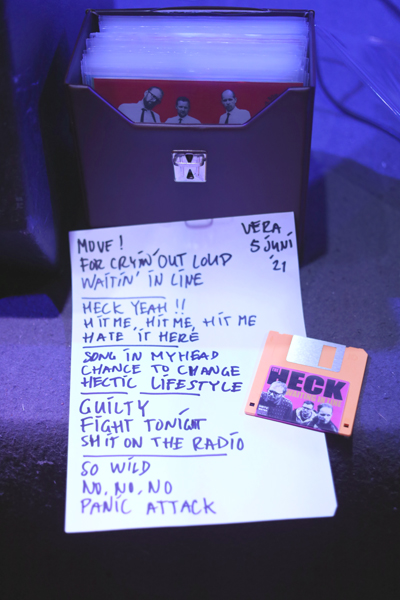 MOVE!
FOR CRYIN' OUT LOUD
WAITIN' IN LINE
VERA
5 JUNI
'21
HECK YEAH !!
HIT ME, HIT ME, HIT ME
HATE IT HERE
SONG IN MY HEAD
CHANCE TO CHANGE
HECTIC LIFESTYLE
GUILTY
FIGHT TONIGHT
SHIT ON THE RADIO
SO WILD
NO, NO, NO
PANIC ATTACK
HECK